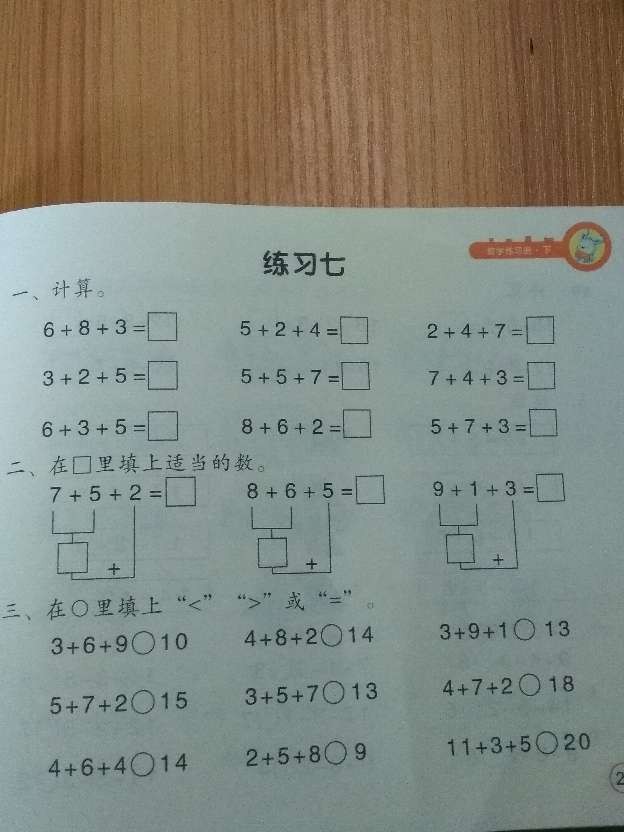 数学练习册·下
练习七
一、计算。
6+8+3=□ 5+2+4=□ 2+4+7=□
3+2+5=□ 5+5+7=□ 7+4+3=□
6+3+5=□ 8+6+2=□ 5+7+3=□
二、在□里填上适当的数。
7+5+2=□ 8+6+5=□ 9+1+3=□
□ + □ + □ +
三、在○里填上“<”“>”或“=”。
3+6+9○10 4+8+2○14 3+9+1○13
5+7+2○15 3+5+7○13 4+7+2○18
4+6+4○14 2+5+8○9 11+3+5○20